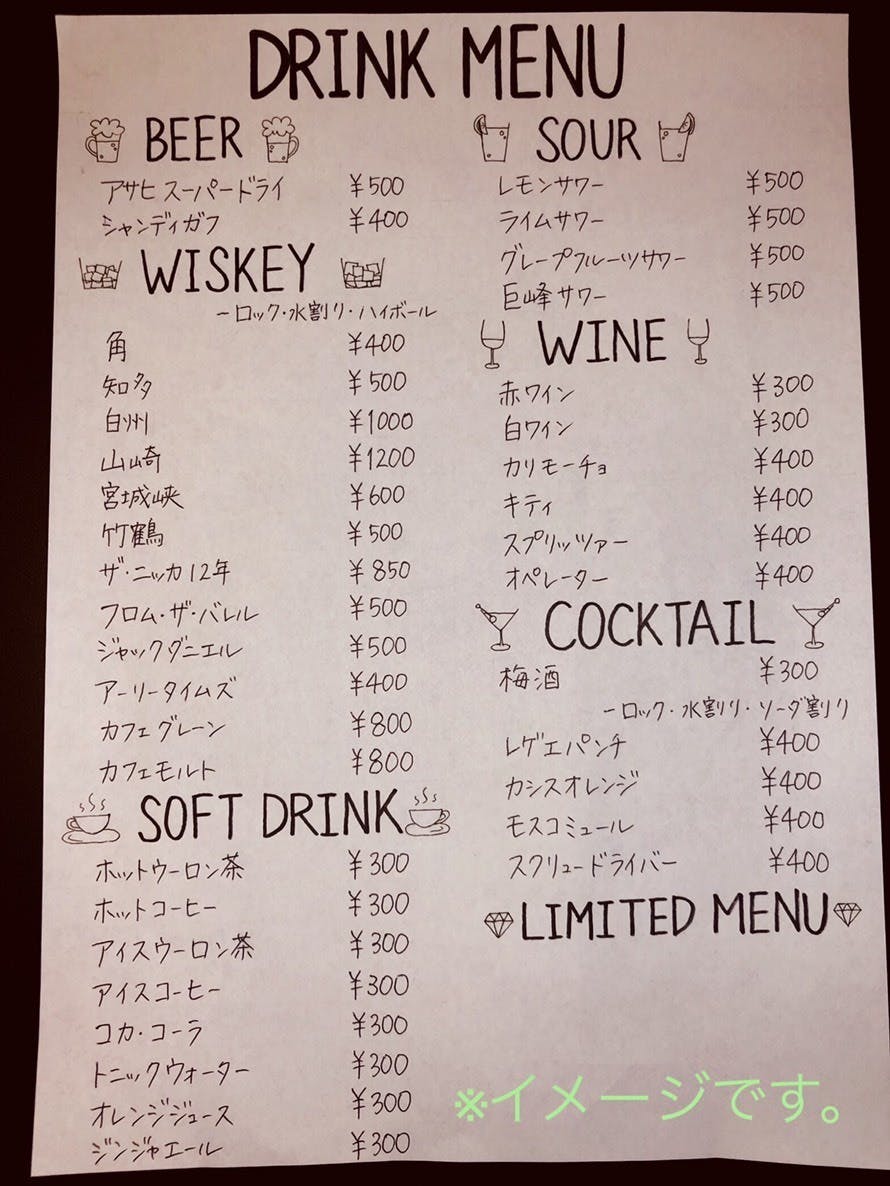 DRINK MENU
BEER
アサヒスーパードライ ¥500
シャンディガフ ¥400
WISKEY
ーロック・水割り・ハイボール
角 ¥400
知多 ¥500
白州 ¥1000
山崎 ¥1200
宮城峡 ¥600
竹鶴 ¥500
ザ・ニッカ12年 ¥850
フロム・ザ・バレル ¥500
ジャックダニエル ¥500
アーリータイムズ ¥400
カフェグレーン ¥800
カフェモルト ¥800
SOFT DRINK
ホットウーロン茶 ¥300
ホットコーヒー ¥300
アイスウーロン茶 ¥300
アイスコーヒー ¥300
コカ・コーラ ¥300
トニックウォーター ¥300
オレンジジュース ¥300
ジンジャエール ¥300
SOUR
レモンサワー ¥500
ライムサワー ¥500
グレープフルーツサワー ¥500
巨峰サワー ¥500
WINE
赤ワイン ¥300
白ワイン ¥300
カリモーチョ ¥400
キティ ¥400
スプリッツァー ¥400
オペレーター ¥400
COCKTAIL
梅酒 ¥300
ーロック・水割り・ソーダ割り
レゲエパンチ ¥400
カシスオレンジ ¥400
モスコミュール ¥400
スクリュードライバー ¥400
LIMITED MENU
※イメージです。